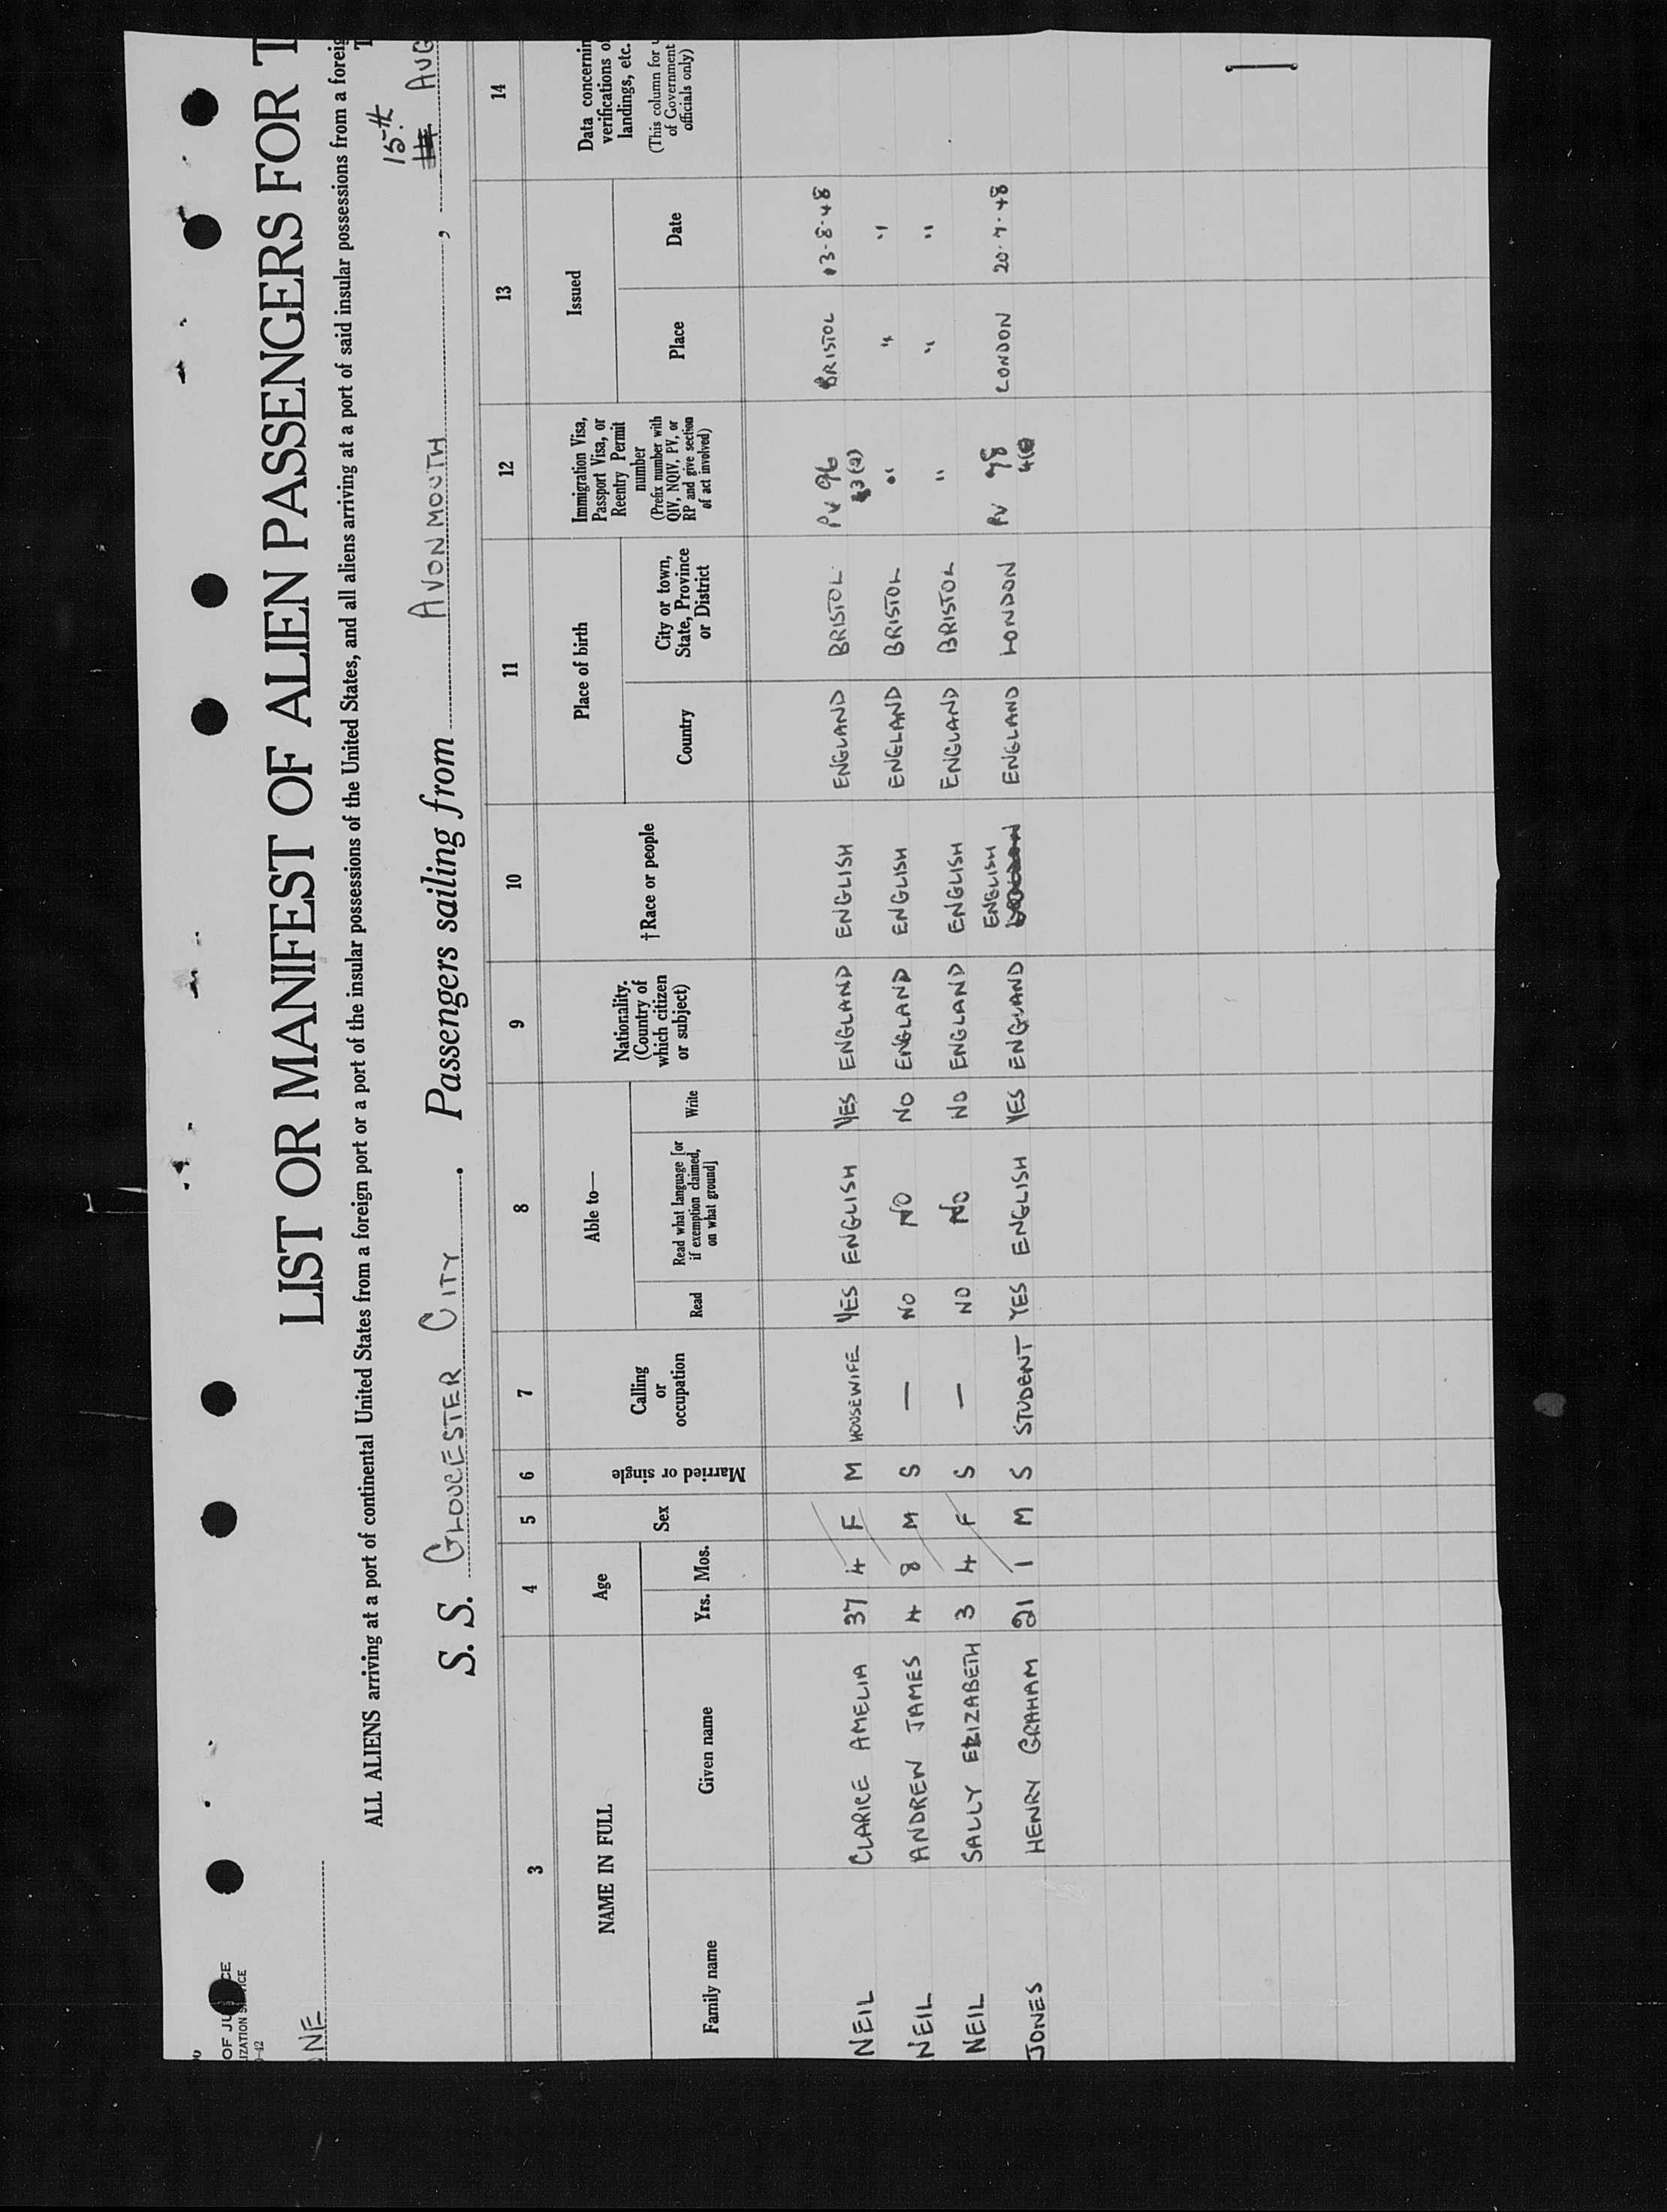 OF JU CE
IZATION S ICE
-42
NE
LIST OR MANIFEST OF ALIEN PASSENGERS FOR T
ALL ALIENS arriving at a port of continental United States from a foreign port or a port of the insular possessions of the United States, and all aliens arriving at a port of said insular possessions from a foreig
15th
S. S. GLOUCESTER CITY . Passengers sailing from AVONMOUTH , AUG
3 4 5 6 7 8 9 10 11 12 13 14
NAME IN FULL
Family name
Given name
Age
Yrs. Mos.
Sex
Married or single
Calling
or
occupation
Able to—
Read
Read what language [or
if exemption claimed,
on what ground]
Write
Nationality.
(Country of
which citizen
or subject)
†Race or people
Place of birth
Country
City or town,
State, Province
or District
Immigration Visa,
Passport Visa, or
Reentry Permit
number
(Prefix number with
QIV, NQIV, PV, or
RP and give section
of act involved)
Issued
Place
Date
Data concernin
verifications o
landings, etc.
(This column for u
of Government
officials only)
NEIL CLARICE AMELIA 37 4 F M HOUSEWIFE YES ENGLISH YES ENGLAND ENGLISH ENGLAND BRISTOL PV 96 BRISTOL 13-8-48
3(2)
NEIL ANDREW JAMES 4 8 M S — NO NO NO ENGLAND ENGLISH ENGLAND BRISTOL " " "
NEIL SALLY ELIZABETH 3 4 F S — NO NO NO ENGLAND ENGLISH ENGLAND BRISTOL " " "
JONES HENRY GRAHAM 21 1 M S STUDENT YES ENGLISH YES ENGLAND ENGLISH ENGLAND LONDON PV 98 LONDON 20.7.48